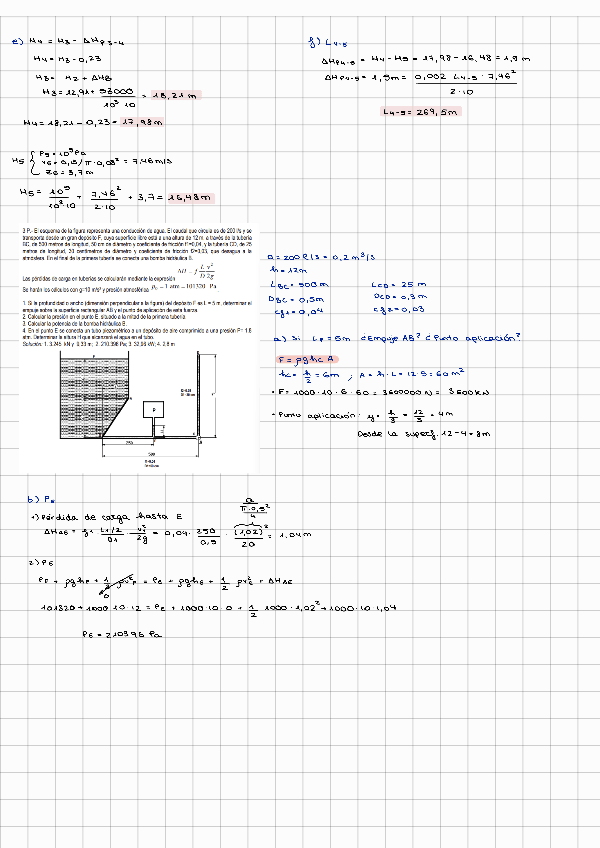 e) H4 = H3 - ΔHp3-4
H4 = H3 - 0,23
H3 = H2 + ΔHB
H3 = 12,91 + 53000 / 10³·10 = 18,21 m
H4 = 18,21 - 0,23 = 17,98 m
H5 { P5 = 10⁵ Pa
V6 = 0,15/π·0,08² = 7,46 m/s
Z6 = 3,7 m
H5 = 10⁵ / 10³·10 + 7,46² / 2·10 + 3,7 = 16,48 m
f) L4-5
ΔHp4-5 = H4 - H5 = 17,98 - 16,48 = 1,5 m
ΔHp4-5 = 1,5 m = 0,002 L4-5 · 7,46² / 2·10
L4-5 = 269,5 m
3 P.- El esquema de la figura representa una conducción de agua. El caudal que circula es de 200 l/s y se
transporta desde un gran depósito F, cuya superficie libre está a una altura de 12 m, a través de la tubería
BC, de 500 metros de longitud, 50 cm de diámetro y coeficiente de fricción f1=0,04, y la tubería CD, de 25
metros de longitud, 30 centímetros de diámetro y coeficiente de fricción f2=0,03, que desagua a la
atmósfera. En el final de la primera tubería se conecta una bomba hidráulica B.
ΔH = f L/D v²/2g
Las pérdidas de carga en tuberías se calcularán mediante la expresión
Se harán los cálculos con g=10 m/s² y presión atmosférica P0 = 1 atm = 101320 Pa
1. Si la profundidad o ancho (dimensión perpendicular a la figura) del depósito F es L = 5 m, determinar el
empuje sobre la superficie rectangular AB y el punto de aplicación de esta fuerza
2. Calcular la presión en el punto E, situado a la mitad de la primera tubería
3. Calcular la potencia de la bomba hidráulica B.
4. En el punto E se conecta un tubo piezométrico a un depósito de aire comprimido a una presión P= 1.8
atm. Determinar la altura H que alcanzará el agua en el tubo.
P
250
500
Q = 200 l/s = 0,2 m³/s
h = 12m
LBC = 500 m
DBC = 0,5m
cf1 = 0,04
LCD = 25 m
DCD = 0,3 m
cf2 = 0,03
a) Si LF = 5m ¿Empuje AB? ¿Punto aplicación?
F = ρghc A
hc = h/2 = 6m ; A = h·L = 12·5 = 60 m²
· F = 1000·10·6·60 = 3600000 N = 3600 kN
· Punto aplicación: y = h/3 = 12/3 = 4m
Desde la superf. 12-4 = 8m
b) PE
1) Pérdida de carga hasta E
Q / π·0,5²/4
ΔHAE = f1 · L1/2 / D1 · v1² / 2g = 0,04 · 250 / 0,5 · (1,02)² / 20 = 1,04 m
2) PE
PF + ρghF + 1/2 ρv²F = PE + ρghE + 1/2 ρv²E + ΔHAE
0
101320 + 1000·10·12 = PE + 1000·10·0 + 1/2 1000·1,02² + 1000·10·1,04
PE = 210396 Pa